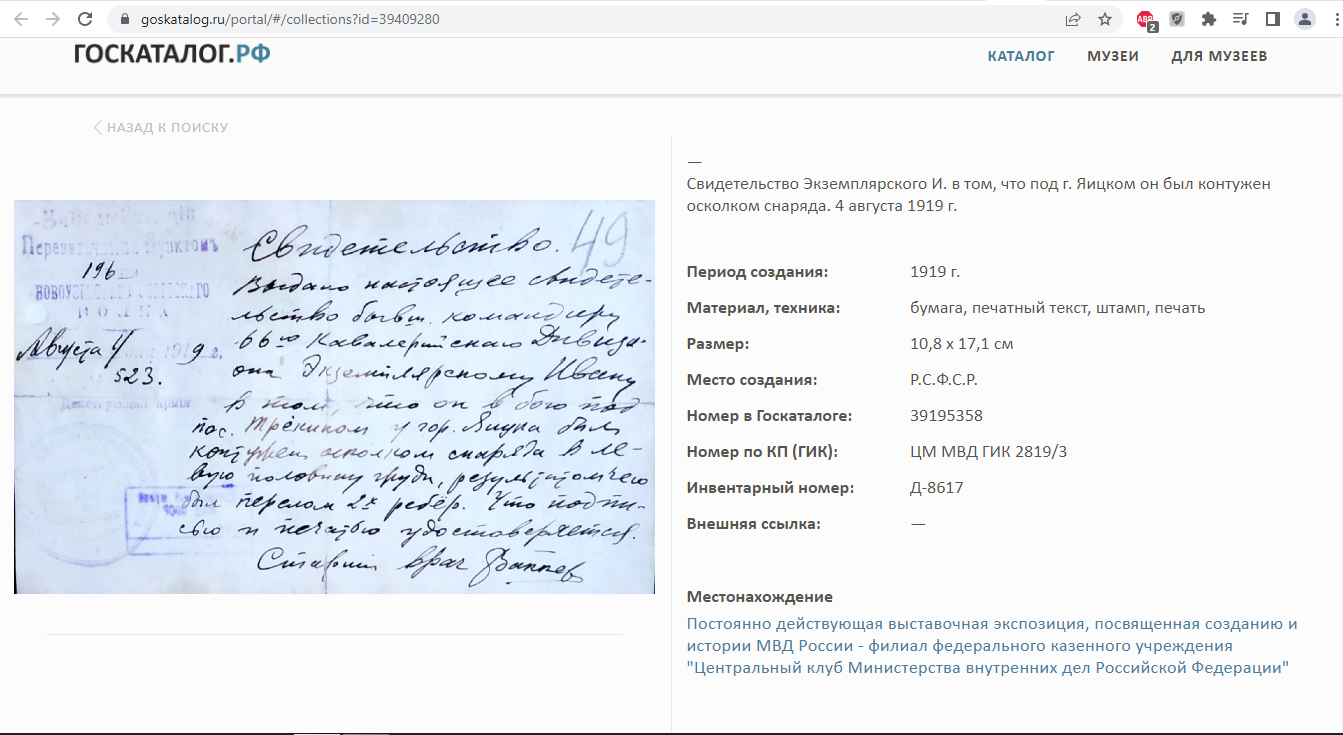 goskatalog.ru/portal/#/collections?id=39409280
ABP
2
ГОСКАТАЛОГ.РФ
КАТАЛОГ
МУЗЕИ
ДЛЯ МУЗЕЕВ
НАЗАД К ПОИСКУ
49
Перевязочн Пунктомъ
196
НОВОУЗЕН
ПОЛКА
Августа 4 1919 г.
523.
Действующая армія
Свидетельство.
Выдано настоящее свидете-
льство бывш. командиру
66го Кавалерийскаго Дивизи-
она Экземплярскому Ивану
в том, что он в бою под
пос. Трёкином у гор. Яицка был
контужен осколком снаряда в ле-
вую половину груди, результатом чего
был перелом 2х ребер. Что подпи-
сью и печатью удостоверяется.
Старший врач
—
Свидетельство Экземплярского И. в том, что под г. Яицком он был контужен
осколком снаряда. 4 августа 1919 г.
Период создания: 1919 г.
Материал, техника: бумага, печатный текст, штамп, печать
Размер: 10,8 х 17,1 см
Место создания: Р.С.Ф.С.Р.
Номер в Госкаталоге: 39195358
Номер по КП (ГИК): ЦМ МВД ГИК 2819/3
Инвентарный номер: Д-8617
Внешняя ссылка: —
Местонахождение
Постоянно действующая выставочная экспозиция, посвященная созданию и
истории МВД России - филиал федерального казенного учреждения
"Центральный клуб Министерства внутренних дел Российской Федерации"